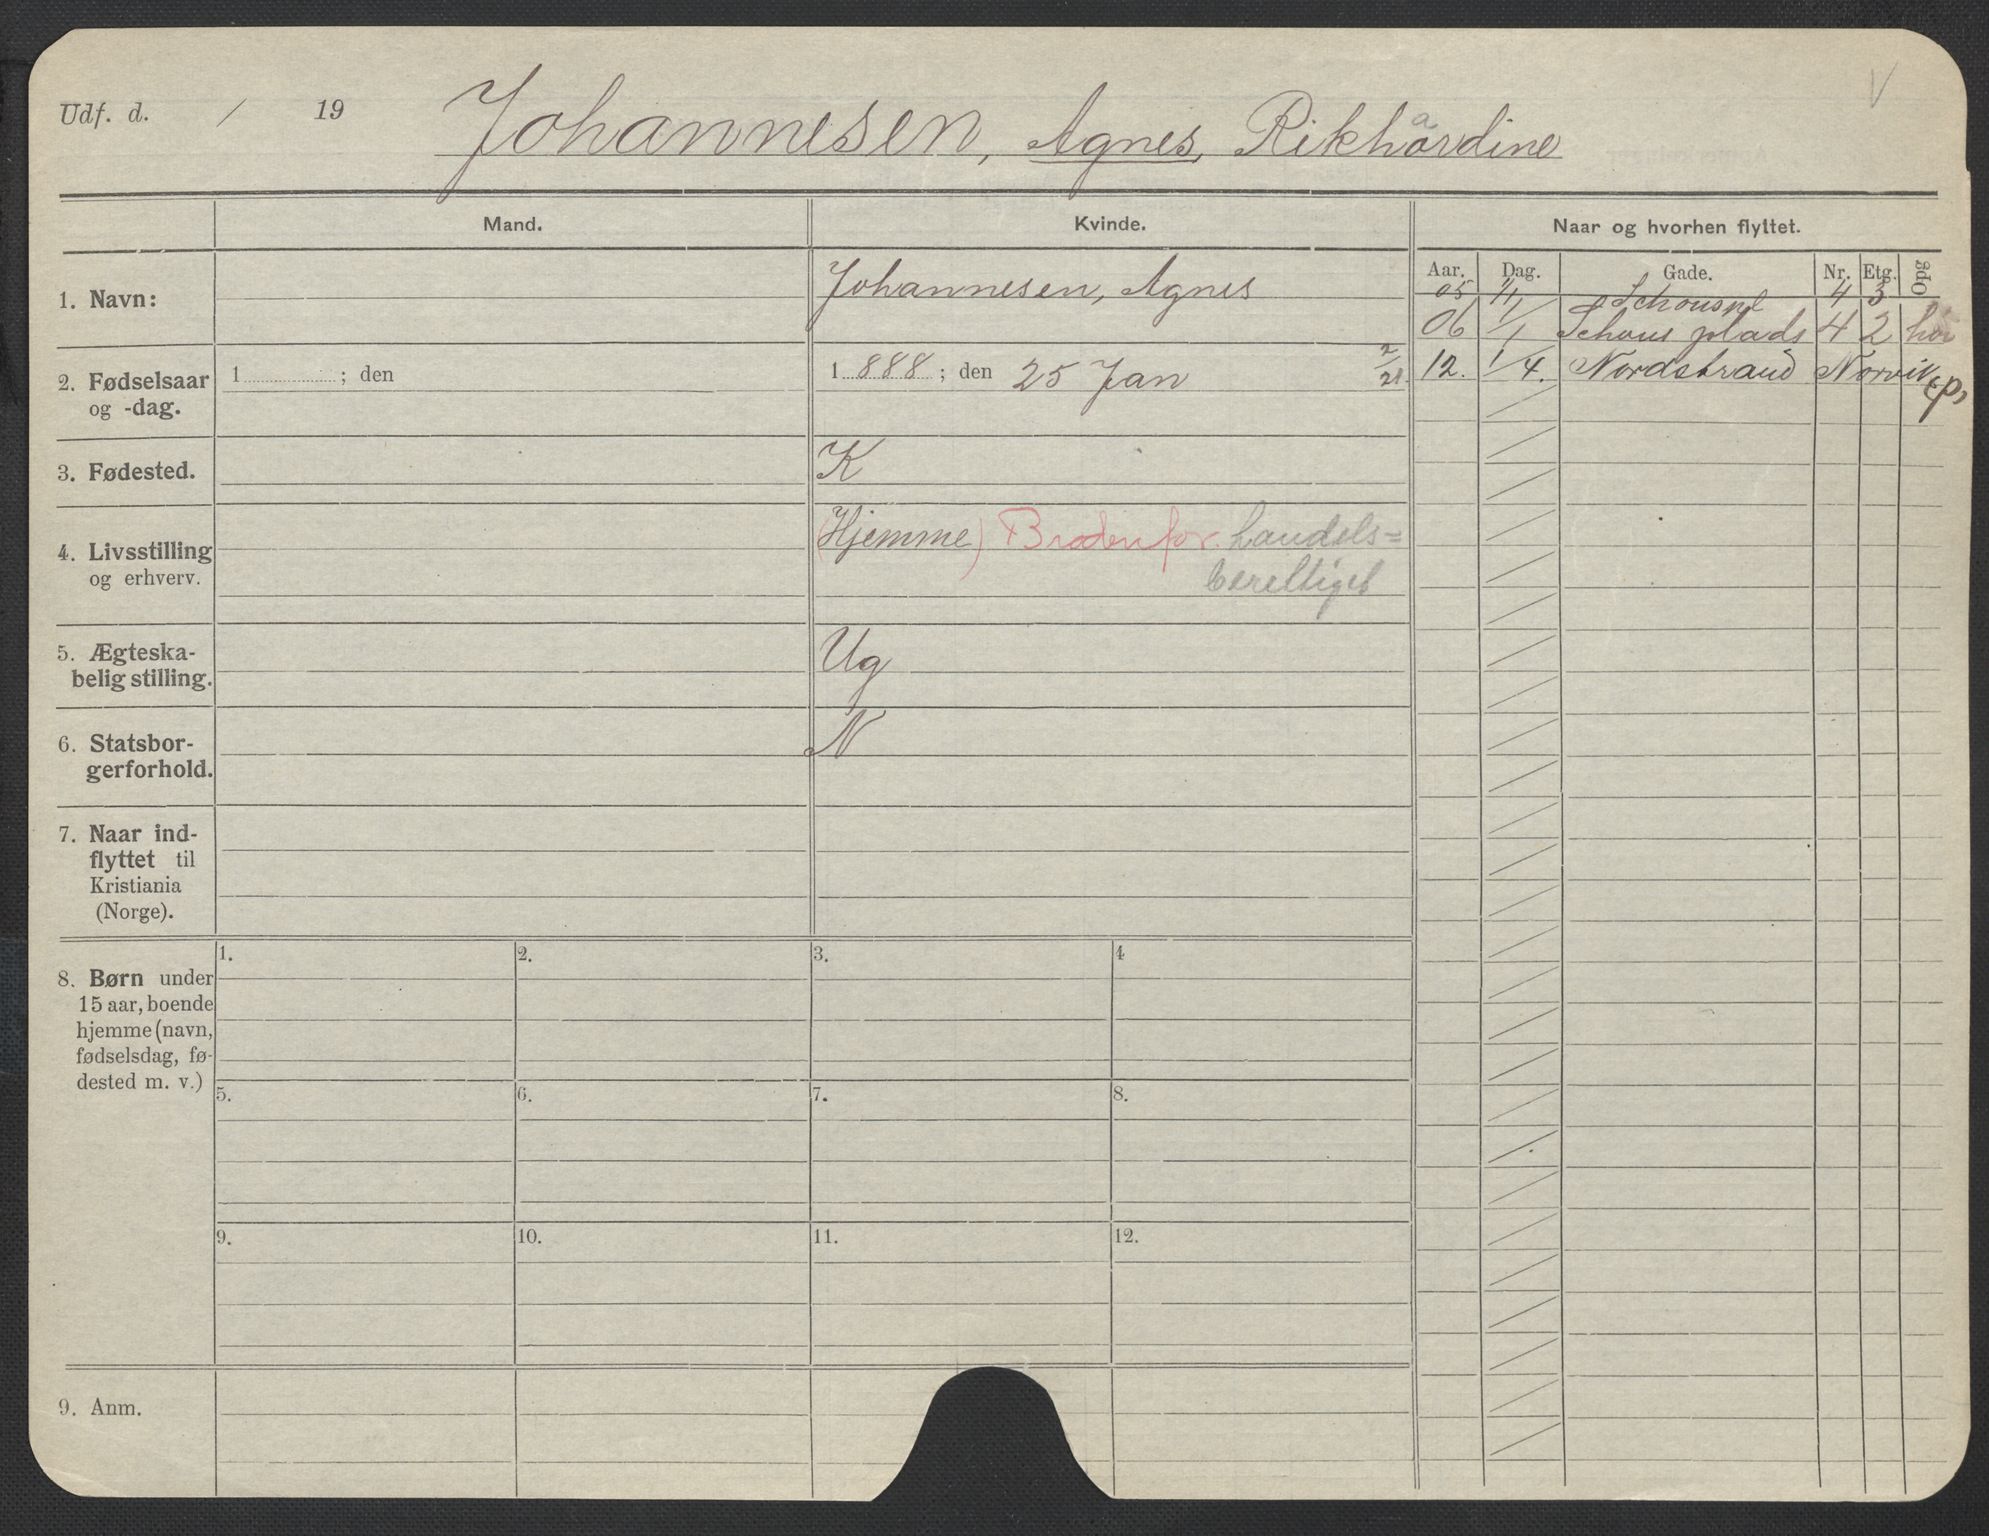 Udf. d. / 19 Johannesen, Agnes, Rikhardine
V
Mand.
Kvinde.
Naar og hvorhen flyttet.
Aar. Dag. Gade. Nr. Etg. Opg
1. Navn:
Johannesen, Agnes
05 1/1 Schouspl 4 3
06 1/1 Schous plads 4 2
12. 1/4. Nordstrand
2. Fødselsaar
og -dag.
1 ; den
1 888 ; den 25 Jan
2/21.
3. Fødested.
K
4. Livsstilling
og erhverv.
(Hjemme) Broden for. handels=
berettiget
5. Ægteska-
belig stilling.
Ug
6. Statsbor-
gerforhold.
N
7. Naar ind-
flyttet til
Kristiania
(Norge).
8. Børn under
15 aar, boende
hjemme (navn,
fødselsdag, fø-
dested m. v.)
1. 2. 3. 4
5. 6. 7. 8.
9. 10. 11. 12.
9. Anm.